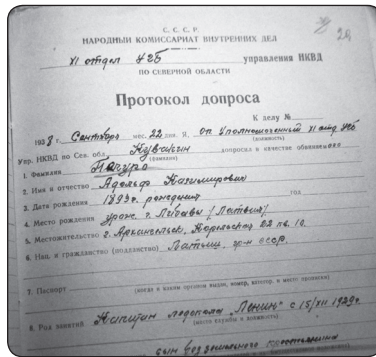 С. С. С. Р.
НАРОДНЫЙ КОМИССАРИАТ ВНУТРЕННИХ ДЕЛ
XI отдел УГБ управления НКВД
ПО СЕВЕРНОЙ ОБЛАСТИ
Протокол допроса
К делу №
1938 г. Сентября мес. 22 дня. Я, оп. Уполномоченный XI отд УГБ
(должность)
Упр. НКВД по Сев. обл. Кувакин допросил в качестве обвиняемого
(фамилия)
1. Фамилия Пачуро
2. Имя и отчество Адольф Казимирович
3. Дата рождения 1893 г. рождения год
4. Место рождения урож. г. Либавы (Латвия)
5. Местожительство г. Архангельск, 22 кв. 10.
6. Нац. и гражданство (подданство) Латыш, гр-н СССР.
7. Паспорт
(когда и каким органом выдан, номер, категор. и место прописки)
8. Род занятий Капитан ледокола „Ленин" с 15/XII 1929 г.
(место службы и должность)
сын